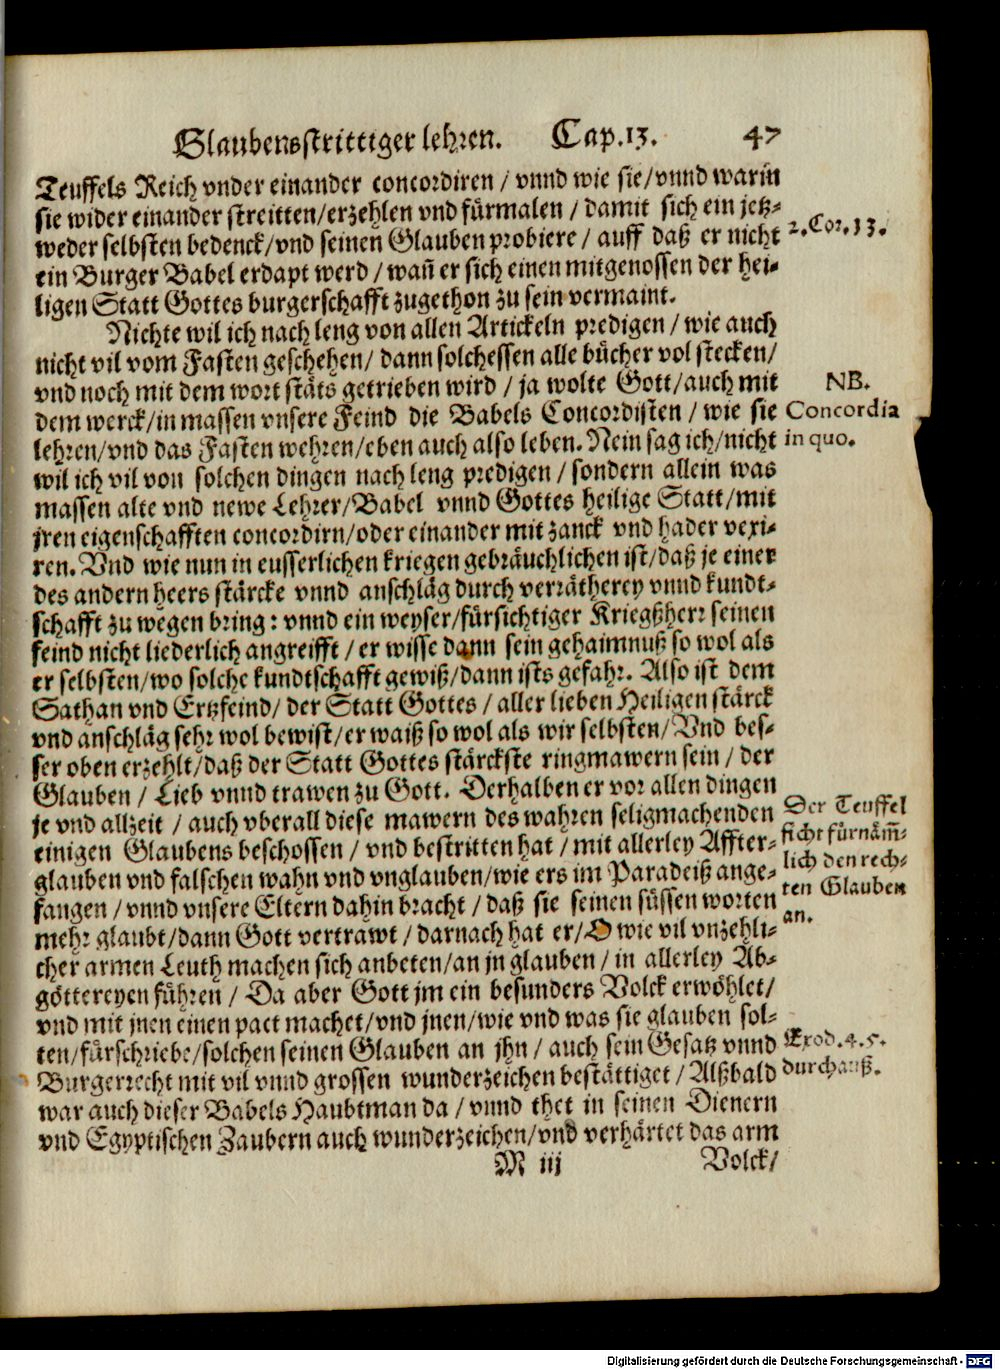 Glaubensstrittiger lehren. Cap.13. 47
Teuffels Reich vnder einander concordiren / vnnd wie sie/vnnd warin
sie wider einander streitten/erzehlen vnd fürmalen / damit sich ein jetz-
weder selbsten bedenck/vnd seinen Glauben probiere / auff daß er nicht
2.Cor.13.
ein Burger Babel erdapt werd / wañ er sich einen mitgenossen der hei-
ligen Statt Gottes burgerschafft zugethon zu sein vermaint.
Nichte wil ich nach leng von allen Artickeln predigen / wie auch
nicht vil vom Fasten geschehen/ dann solchessen alle bücher vol stecken/
vnd noch mit dem wort stäts getrieben wird / ja wolte Gott/auch mit
NB.
dem werck/in massen vnsere Feind die Babels Concordisten / wie sie
Concordia
lehren/vnd das Fasten wehren/eben auch also leben. Nein sag ich/nicht
in quo.
wil ich vil von solchen dingen nach leng predigen / sondern allein was
massen alte vnd newe Lehrer/Babel vnnd Gottes heilige Statt/mit
jren eigenschafften concordirn/oder einander mit zanck vnd hader vexi-
ren. Vnd wie nun in eusserlichen kriegen gebräuchlichen ist/daß je einer
des andern heers stärcke vnnd anschläg durch verrätherey vnnd kundt-
schafft zu wegen bring: vnnd ein weyser/fürsichtiger Kriegßherr seinen
feind nicht liederlich angreifft / er wisse dann sein gehaimnuß so wol als
er selbsten/wo solche kundtschafft gewiß/dann ists gefahr. Also ist dem
Sathan vnd Ertzfeind/ der Statt Gottes / aller lieben Heiligen stärck
vnd anschläg sehr wol bewist/er waiß so wol als wir selbsten/Vnd bes-
ser oben erzehlt/daß der Statt Gottes stärckste ringmawern sein / der
Glauben / Lieb vnnd trawen zu Gott. Derhalben er vor allen dingen
je vnd allzeit / auch vberall diese mawern des wahren seligmachenden
einigen Glaubens beschossen / vnd bestritten hat / mit allerley Affter-
glauben vnd falschen wahn vnd vnglauben/wie ers im Paradeiß ange-
fangen / vnnd vnsere Eltern dahin bracht / daß sie seinen süssen worten
Der Teuffel
ficht fürnäm̃-
lich den rech-
ten Glauben
an.
mehr glaubt/dann Gott vertrawt / darnach hat er/O wie vil vnzehli-
cher armen Leuth machen sich anbeten/an jn glauben / in allerley Ab-
göttereyen führen / Da aber Gott jm ein besunders Volck erwöhlet/
vnd mit jnen einen pact machet/vnd jnen/wie vnd was sie glauben sol-
ten/fürschriebe/solchen seinen Glauben an jhn / auch sein Gesatz vnnd
Exod.4.5.
durchauß.
Burgerrecht mit vil vnnd grossen wunderzeichen bestättiget / Alßbald
war auch dieser Babels Haubtman da / vnnd thet in seinen Dienern
vnd Egyptischen Zaubern auch wunderzeichen/vnd verhärtet das arm
M iij Volck/
Digitalisierung gefördert durch die Deutsche Forschungsgemeinschaft - DFG